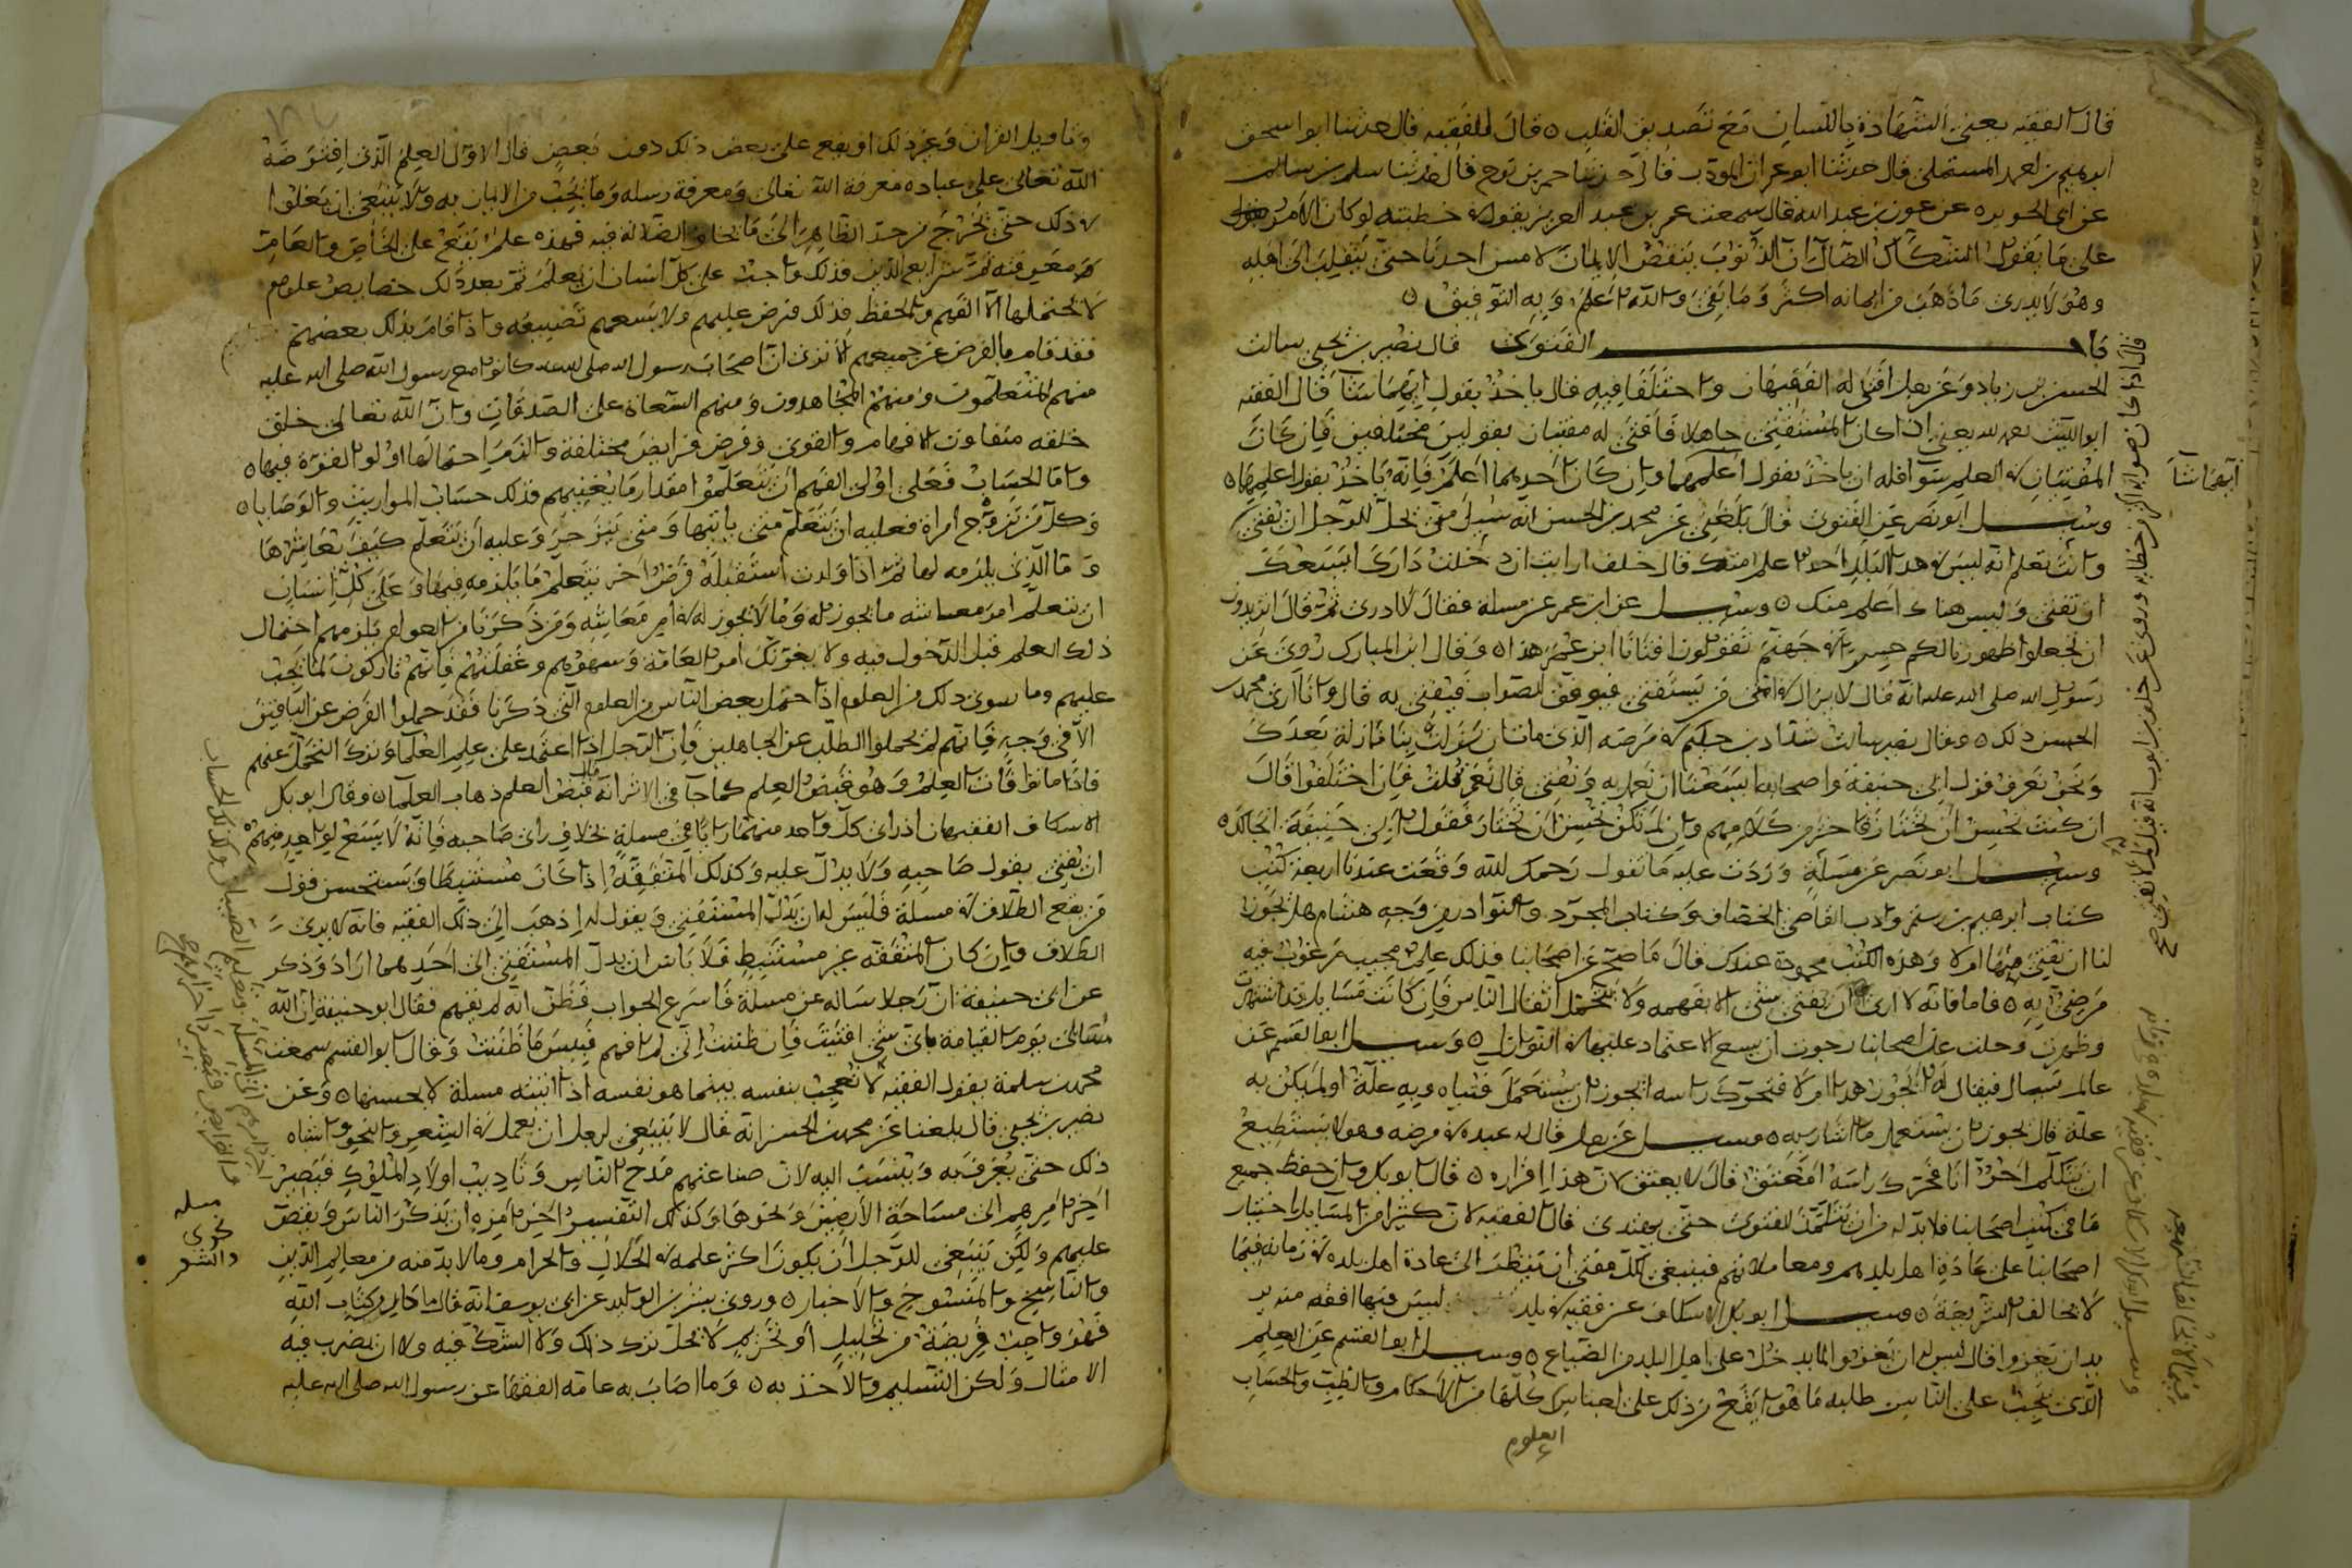 قال الفقيه يعني الشهادة باللسان مع تصديق القلب ه قال الفقيه قال حدثنا ابو اسحق
ابرهيم بن احمد المستملى قال حدثنا ابو عمران المودب قال حدثنا حم بن نوح قال حدثنا سلم بن سالم
عن ابى الجويره عن عون بن عبد الله قال سمعت عمر بن عبد العزيز يقول فى خطبته لو كان الامر
على ما يقول الشكاك الضال ان الذنوب ينقض الايمان لامسى احدنا حتى ينقلب الى اهله
وهو لا يدرى ما ذهب من ايمانه اكثر وما بقى والله اعلم وبه التوفيق ه
باب الفتوى قال نصير بن يحيى سالت
الحسن بن زياد عن رجل افتى له الفقيهان واختلفا فيه قال ياخذ بقول ايهما شآ قال الفقيه
ابو الليث رحمه الله يعني اذا كان المستفتى جاهلا فافتى له مفتيان بقولين مختلفين فان كان
المفتيان فى العلم سوآ فله ان ياخذ بقول ايهما شآ وان كان احدهما اعلم فانه ياخذ بقول اعلمهما ه
وسئل ابو نصر عن الفتوى قال بلغنى عن محمد بن الحسن انه سئل متى يحل للرجل ان يفتى
وانت تعلم انه ليس فى هذا البلد احد اعلم منك قال خلف ارايت ان دخلت دارك ايسعك
ان تفتى وليس هناك اعلم منك ه وسئل عن ابن عمر عن مسلة فقال لا ادرى ثم قال اتريدون
ان تجعلوا ظهورنا لكم جسرا فى جهنم تقولون افتانا ابن عمر هذا ه وقال ابن المبارك روى عن
رسول الله صلى الله عليه انه قال لا يزال فى امتى من يستفتى فيوفق الصواب فيفتى به قال وانا ارى محمد بن
الحسن ذلك ه وقال نصير سالت شداد بن حكيم فى مرضه الذى مات ان نزلت بنا نازلة بعدك
ونحن نعرف قول ابى حنيفة واصحابه ايسعنا ان نعمل به ونفتى قال نعم قلت فان اختلفوا قال
ان كنت تحسن ان تختار فاختر من كلامهم وان لم تكن تحسن ان تختار فقول ابى حنيفة انجا لك ه
وسئل ابو نصر عن مسلة وردت عليه ما تقول رحمك الله وقعت عندنا اربعة كتب
كتاب ابرهيم بن رستم وادب القاضى الخصاف وكتاب المجرد والنوادر من وجه هشام هل يجوز
لنا ان نفتى منها ام لا وهذه الكتب محمودة عندك قال ما صح عن اصحابنا فذلك علم محبب مرغوب فيه
مرضى به ه فاما فانه لا ارى ان يفتى بشى لا يفهمه ولا يتحمل اثقال الناس فان كانت مسايل قد اشتهرت
وظهرت وحلت عن اصحابنا رجوت ان يسع الاعتماد عليها فى النوازل ه وسئل ابو القسم عن
عالم يسال فيقال له ايجوز هذا ام لا فتحرك راسه ايجوز ان يستعمل فتياه وبه علة او لم يكن به
علة قال يجوز ان يستعمل ما اشار به ه وسئل عن رجل قال له عبده فى مرضه وهو لا يستطيع
ان يتكلم احر انا فحرك راسه ايعتق قال لا يعتق لان هذا اقراره ه قال ابو بكر وان حفظ جميع
ما فى كتب اصحابنا فلا بد له من ان يتلمذ للفتوى حتى يهتدى قال الفقيه لان كثيرا من المسايل اختيار
اصحابنا على عادة اهل بلدهم ومعاملاتهم فينبغى لكل مفتى ان ينظر الى عادة اهل بلده فى زمانه فيما
لا يخالف الشريعة ه وسئل ابو بكر الاسكاف عن فقيه فى بلد ليس فيها افقه منه يريد
ان يغزوا قال ليس له ان يغزو لما يدخل على اهل البلد من الضياع ه وسئل ابو القسم عن العلم
الذى يجب على الناس طلبه ما هو ايقع ذلك على اجناس كلها من الاحكام والطب والحساب
العلوم
ايهما شآ
وتاويل القران وغير ذلك او يقع على بعض ذلك دون بعض قال الاول العلم الذى افترضه
الله تعالى على عباده معرفة الله تعالى ومعرفة رسله وما يجب من الايمان به ولا ينبغى ان يغلوا
فى ذلك حتى يخرج من حد الظاهر الى ما يخاف الضلالة فيه فهذه علم يقع على الخاص والعام
ثم شرايع الدين فذلك واجب على كل انسان ان يعلم ثم بعد ذلك خصايص علوم
لا يحتملها الا الفهم والحفظ فذلك فرض عليهم ولا يسعهم تضييعه واذا قام بذلك بعضهم
فقد قام بالفرض عن جميعهم الا ترى ان اصحاب رسول الله صلى الله عليه كانوا مع رسول الله صلى الله عليه
منهم المتعلمون ومنهم المجاهدون ومنهم السعاة على الصدقات وان الله تعالى خلق
خلقه متفاوت الافهام والقوى وفرض فرايض مختلفة والزم احتمالها اولو القوة فيها ه
واما الحساب فعلى اولى الفهم ان يتعلموا مقدار ما يعنيهم فذلك حساب المواريث والوصايا ه
وكل من تزوج امراة فعليه ان يتعلم متى ياتيها ومتى ينزجر وعليه ان يتعلم كيف يعاشرها
وما الذى يلزمه لها ثم اذا ولدت استقبله فرض اخر يتعلم ما يلزمه فيها وعلى كل انسان
ان يتعلم امر معاشه ما يجوز له وما لا يجوز له فى امر معاشه ومن ذكرنا من العوام يلزمهم احتمال
ذلك العلم قبل الدخول فيه ولا يغرنك امور العامة وسهوهم وغفلتهم فانهم تاركون لما يجب
عليهم وما سوى ذلك من العلوم اذا احتمل بعض الناس من العلوم التى ذكرنا فقد حملوا الفرض عن الباقين
الا فى وجه فانهم لم يحملوا الطلب عن الجاهلين فان الرجل اذا اعتمد على علم العلمآ وترك التحمل عنهم
فاذا ماتوا فات العلم وهو قبض العلم كما جآ فى الاثر انه قال قبض العلم ذهاب العلمآ ه وقال ابو بكر
الاسكاف الفقيهان اذ راى كل واحد منهما رايا فى مسلة بخلاف راى صاحبه فانه لا يسع لواحد منهما
ان يفتى بقول صاحبه ولا يدل عليه وكذلك المتفقهة اذا كان مستنبطا ويستحسن قول
من يقع الطلاق فى مسلة فليس له ان يدل المستفتى ويقول له اذهب الى ذلك الفقيه فانه لا يرى
الطلاق وان كان المتفقه غير مستنبط فلا باس ان يدل المستفتى الى احد لهما اراد وذكر
عن ابى حنيفة ان رجلا ساله عن مسلة فاسرع الجواب فظن انه لم يفهم فقال ابو حنيفة ان الله
يسالنى يوم القيامة باى شى افتيت فان ظننت انى لم افهم فبيس ما ظننت وقال ابو القسم سمعت
محمد بن سلمة يقول الفقيه لا تعجب بنفسه بينما هو نفسه اذا اتيته مسلة لا يحسنها ه وعن
نصير بن يحيى قال بلغنا عن محمد بن الحسن انه قال لا ينبغى لرجل ان يعمل فى الشعر والنحو واشباه
ذلك حتى يعرف به وينسب اليه لان صناعتهم مدح الناس وتاديب اولاد الملوك فيصير
اخر امرهم الى مساحة الارضين ونحوها وكذلك التفسير اخر امره ان يذكر الناس ويقص
عليهم ولكن ينبغى للرجل ان يكون اكثر علمه فى الحلال والحرام وما لا بد منه من معالم الدين
والناسخ والمنسوخ والاخبار ه وروى بشر بن الوليد عن ابى يوسف انه قال ما كان من كتاب الله
فهو واجب فريضة من تحليل او تحريم لا يحل ترك ذلك ولا الشك فيه ولا ان يضرب فيه
الامثال ولكن التسليم والاخذ به ه وما اصاب به عامة الفقها عن رسول الله صلى الله عليه
مسله
نحوى
والشعر